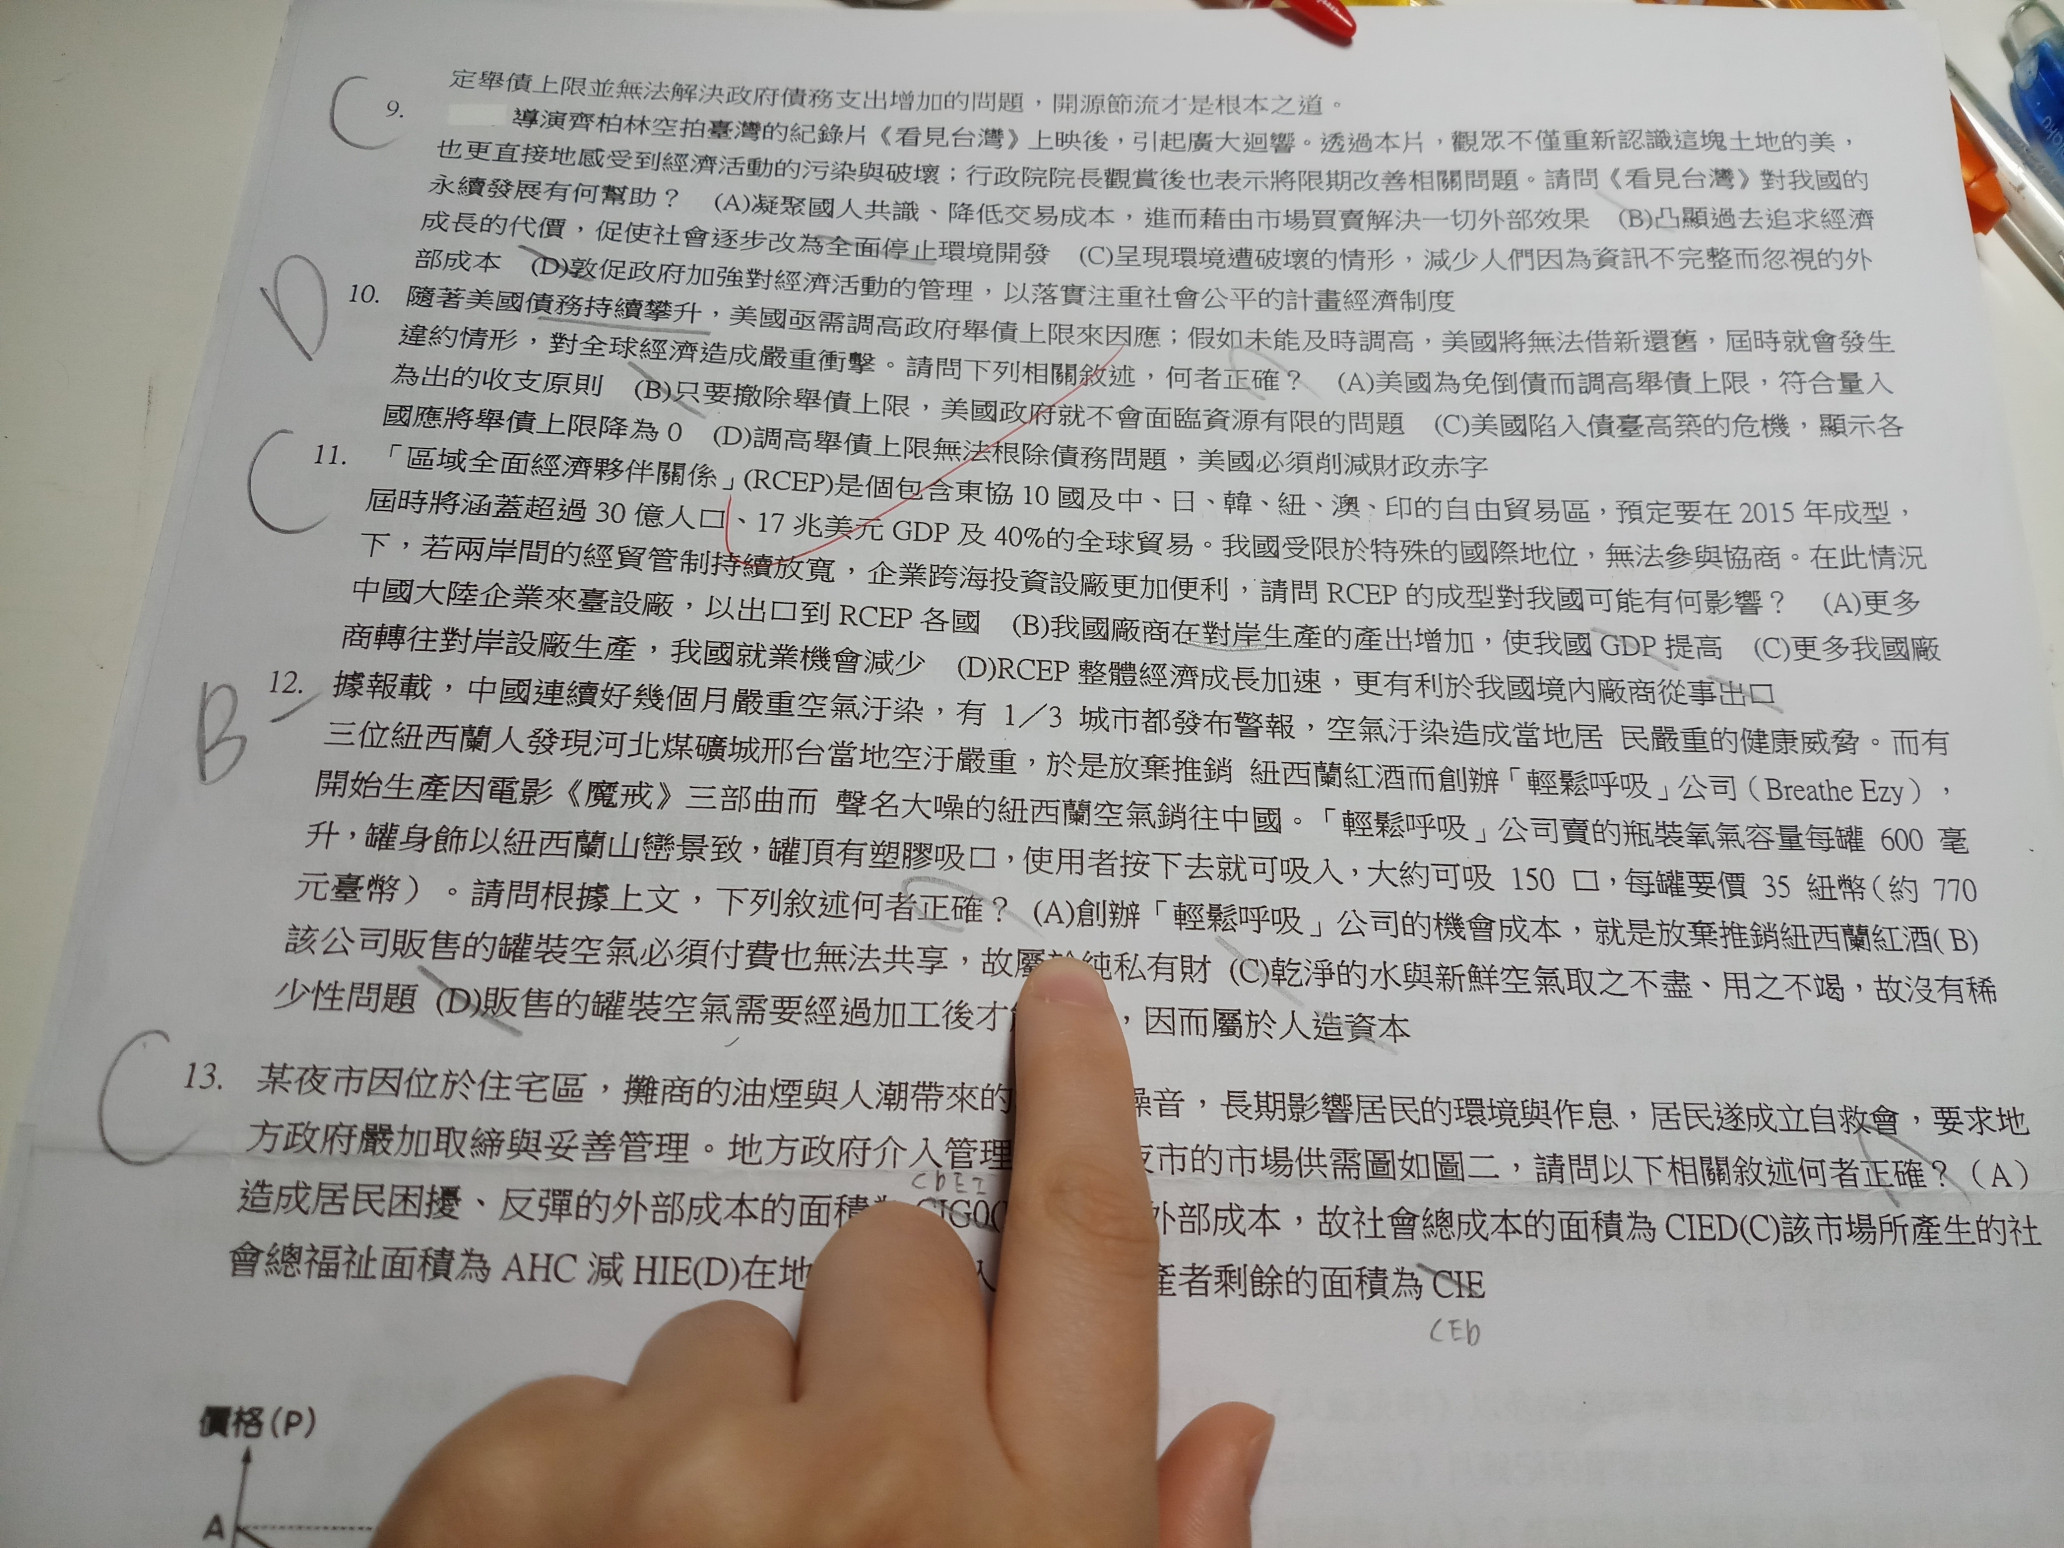 定舉債上限並無法解決政府債務支出增加的問題，開源節流才是根本之道。
C 9. 導演齊柏林空拍臺灣的紀錄片《看見台灣》上映後，引起廣大迴響。透過本片，觀眾不僅重新認識這塊土地的美，
也更直接地感受到經濟活動的污染與破壞；行政院院長觀賞後也表示將限期改善相關問題。請問《看見台灣》對我國的
永續發展有何幫助？ (A)凝聚國人共識、降低交易成本，進而藉由市場買賣解決一切外部效果 (B)凸顯過去追求經濟
成長的代價，促使社會逐步改為全面停止環境開發 (C)呈現環境遭破壞的情形，減少人們因為資訊不完整而忽視的外
部成本 (D)敦促政府加強對經濟活動的管理，以落實注重社會公平的計畫經濟制度
D 10. 隨著美國債務持續攀升，美國亟需調高政府舉債上限來因應；假如未能及時調高，美國將無法借新還舊，屆時就會發生
違約情形，對全球經濟造成嚴重衝擊。請問下列相關敘述，何者正確？ (A)美國為免倒債而調高舉債上限，符合量入
為出的收支原則 (B)只要撤除舉債上限，美國政府就不會面臨資源有限的問題 (C)美國陷入債臺高築的危機，顯示各
國應將舉債上限降為 0 (D)調高舉債上限無法根除債務問題，美國必須削減財政赤字
C 11. 「區域全面經濟夥伴關係」(RCEP)是個包含東協 10 國及中、日、韓、紐、澳、印的自由貿易區，預定要在 2015 年成型，
屆時將涵蓋超過 30 億人口、17 兆美元 GDP 及 40%的全球貿易。我國受限於特殊的國際地位，無法參與協商。在此情況
下，若兩岸間的經貿管制持續放寬，企業跨海投資設廠更加便利，請問 RCEP 的成型對我國可能有何影響？ (A)更多
中國大陸企業來臺設廠，以出口到 RCEP 各國 (B)我國廠商在對岸生產的產出增加，使我國 GDP 提高 (C)更多我國廠
商轉往對岸設廠生產，我國就業機會減少 (D)RCEP 整體經濟成長加速，更有利於我國境內廠商從事出口
B 12. 據報載，中國連續好幾個月嚴重空氣汙染，有 1／3 城市都發布警報，空氣汙染造成當地居 民嚴重的健康威脅。而有
三位紐西蘭人發現河北煤礦城邢台當地空汙嚴重，於是放棄推銷 紐西蘭紅酒而創辦「輕鬆呼吸」公司（Breathe Ezy），
開始生產因電影《魔戒》三部曲而 聲名大噪的紐西蘭空氣銷往中國。「輕鬆呼吸」公司賣的瓶裝氧氣容量每罐 600 毫
升，罐身飾以紐西蘭山巒景致，罐頂有塑膠吸口，使用者按下去就可吸入，大約可吸 150 口，每罐要價 35 紐幣（約 770
元臺幣）。請問根據上文，下列敘述何者正確？ (A)創辦「輕鬆呼吸」公司的機會成本，就是放棄推銷紐西蘭紅酒(B)
該公司販售的罐裝空氣必須付費也無法共享，故屬於純私有財 (C)乾淨的水與新鮮空氣取之不盡、用之不竭，故沒有稀
少性問題 (D)販售的罐裝空氣需要經過加工後才，因而屬於人造資本
C 13. 某夜市因位於住宅區，攤商的油煙與人潮帶來的噪音，長期影響居民的環境與作息，居民遂成立自救會，要求地
方政府嚴加取締與妥善管理。地方政府介入管理夜市的市場供需圖如圖二，請問以下相關敘述何者正確？（A）
CDEI
造成居民困擾、反彈的外部成本的面積外部成本，故社會總成本的面積為 CIED(C)該市場所產生的社
會總福祉面積為 AHC 減 HIE(D)在地產者剩餘的面積為 CIE
CED
價格(P)
A